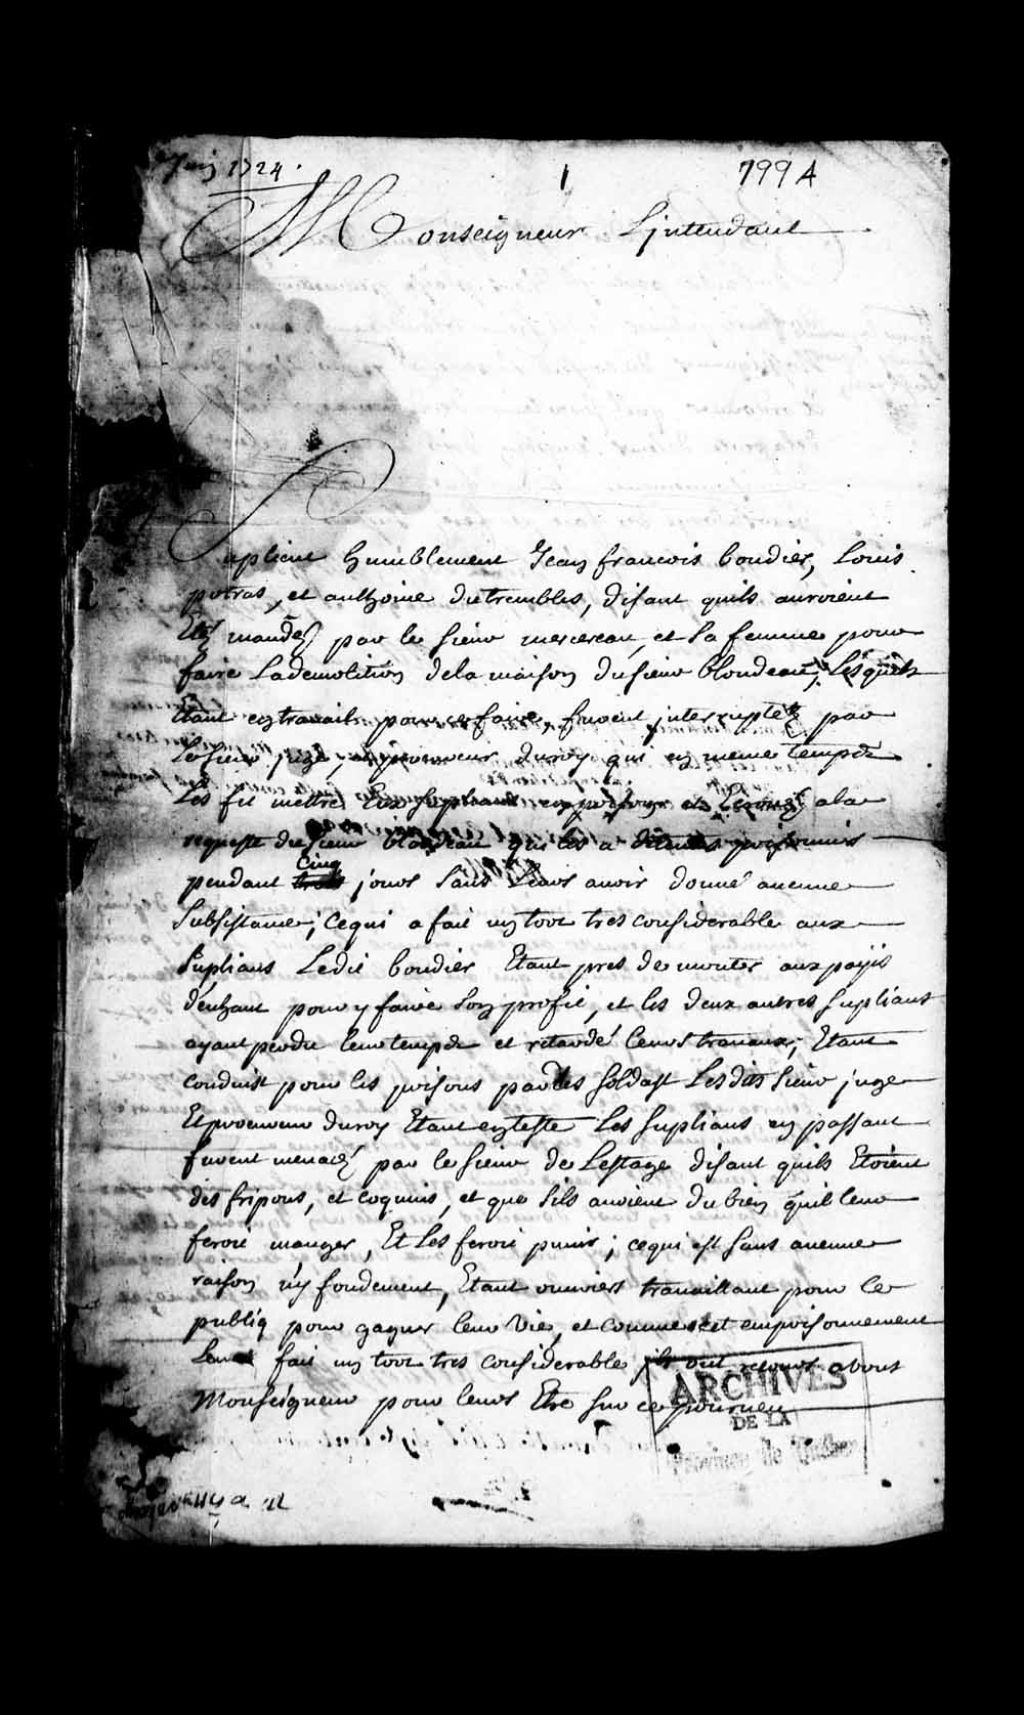 Juin 1724.
1
799A
Monseigneur Lintendant
Suplient humblement Jean francois boudier, Louis
potras, et anthoine destrembles, disant quils auroient
Eté mandéz par le sieur mercereau, et sa femme pour
faire La demolition de la maison du sieur blondeau; Lesquels
Etant en travail pour ce faire, furent interruptez par
Le sieur juge, et procureur du roy qui en meme tempde
Les fit mettre Eux suplians en prison et Ecrouez a la
requeste du sieur blondeau qui les a détenus prisonniers
pendant trois cinq jours sans Leurs avoir donné aucune
subsistance; ce qui a fait un tort tres considerable aux
suplians Ledit boudier Etant pres de monter aux payis
d'enhaut pour y faire son profit, et les deux autres suplians
ayant perdu leur tempde et retardé leurs travaux; Etant
conduist pour les prisons par des soldast Lesdits sieur juge
Et procureur du roy Etant en teste Les suplians en passant
furent menacéz par le sieur de Lestage disant quils Etoient
des fripons, et coquins, et que sils avoient du bien quil leur
feroit manger, Et les feroit punir; ce qui est sans aucune
raison ny fondement, Etant ouvriers travaillant pour le
publiq pour gagner leur vie, et comme cet emprisonnement
Leur fait un tort tres considerable ils ont recours a vous
Monseigneur pour leurs Etre sur ce pourveu
ARCHIVES
DE LA
Province de Québec